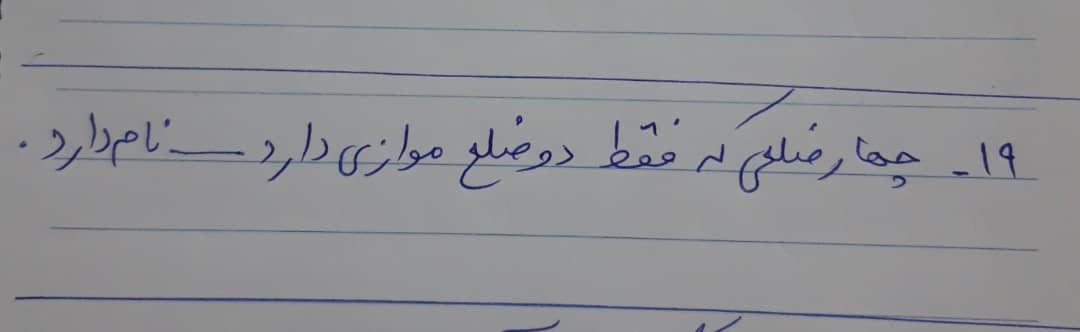 ۱۹ـ چهارضلعی که فقط دو ضلع موازی دارد ـــ نام دارد .